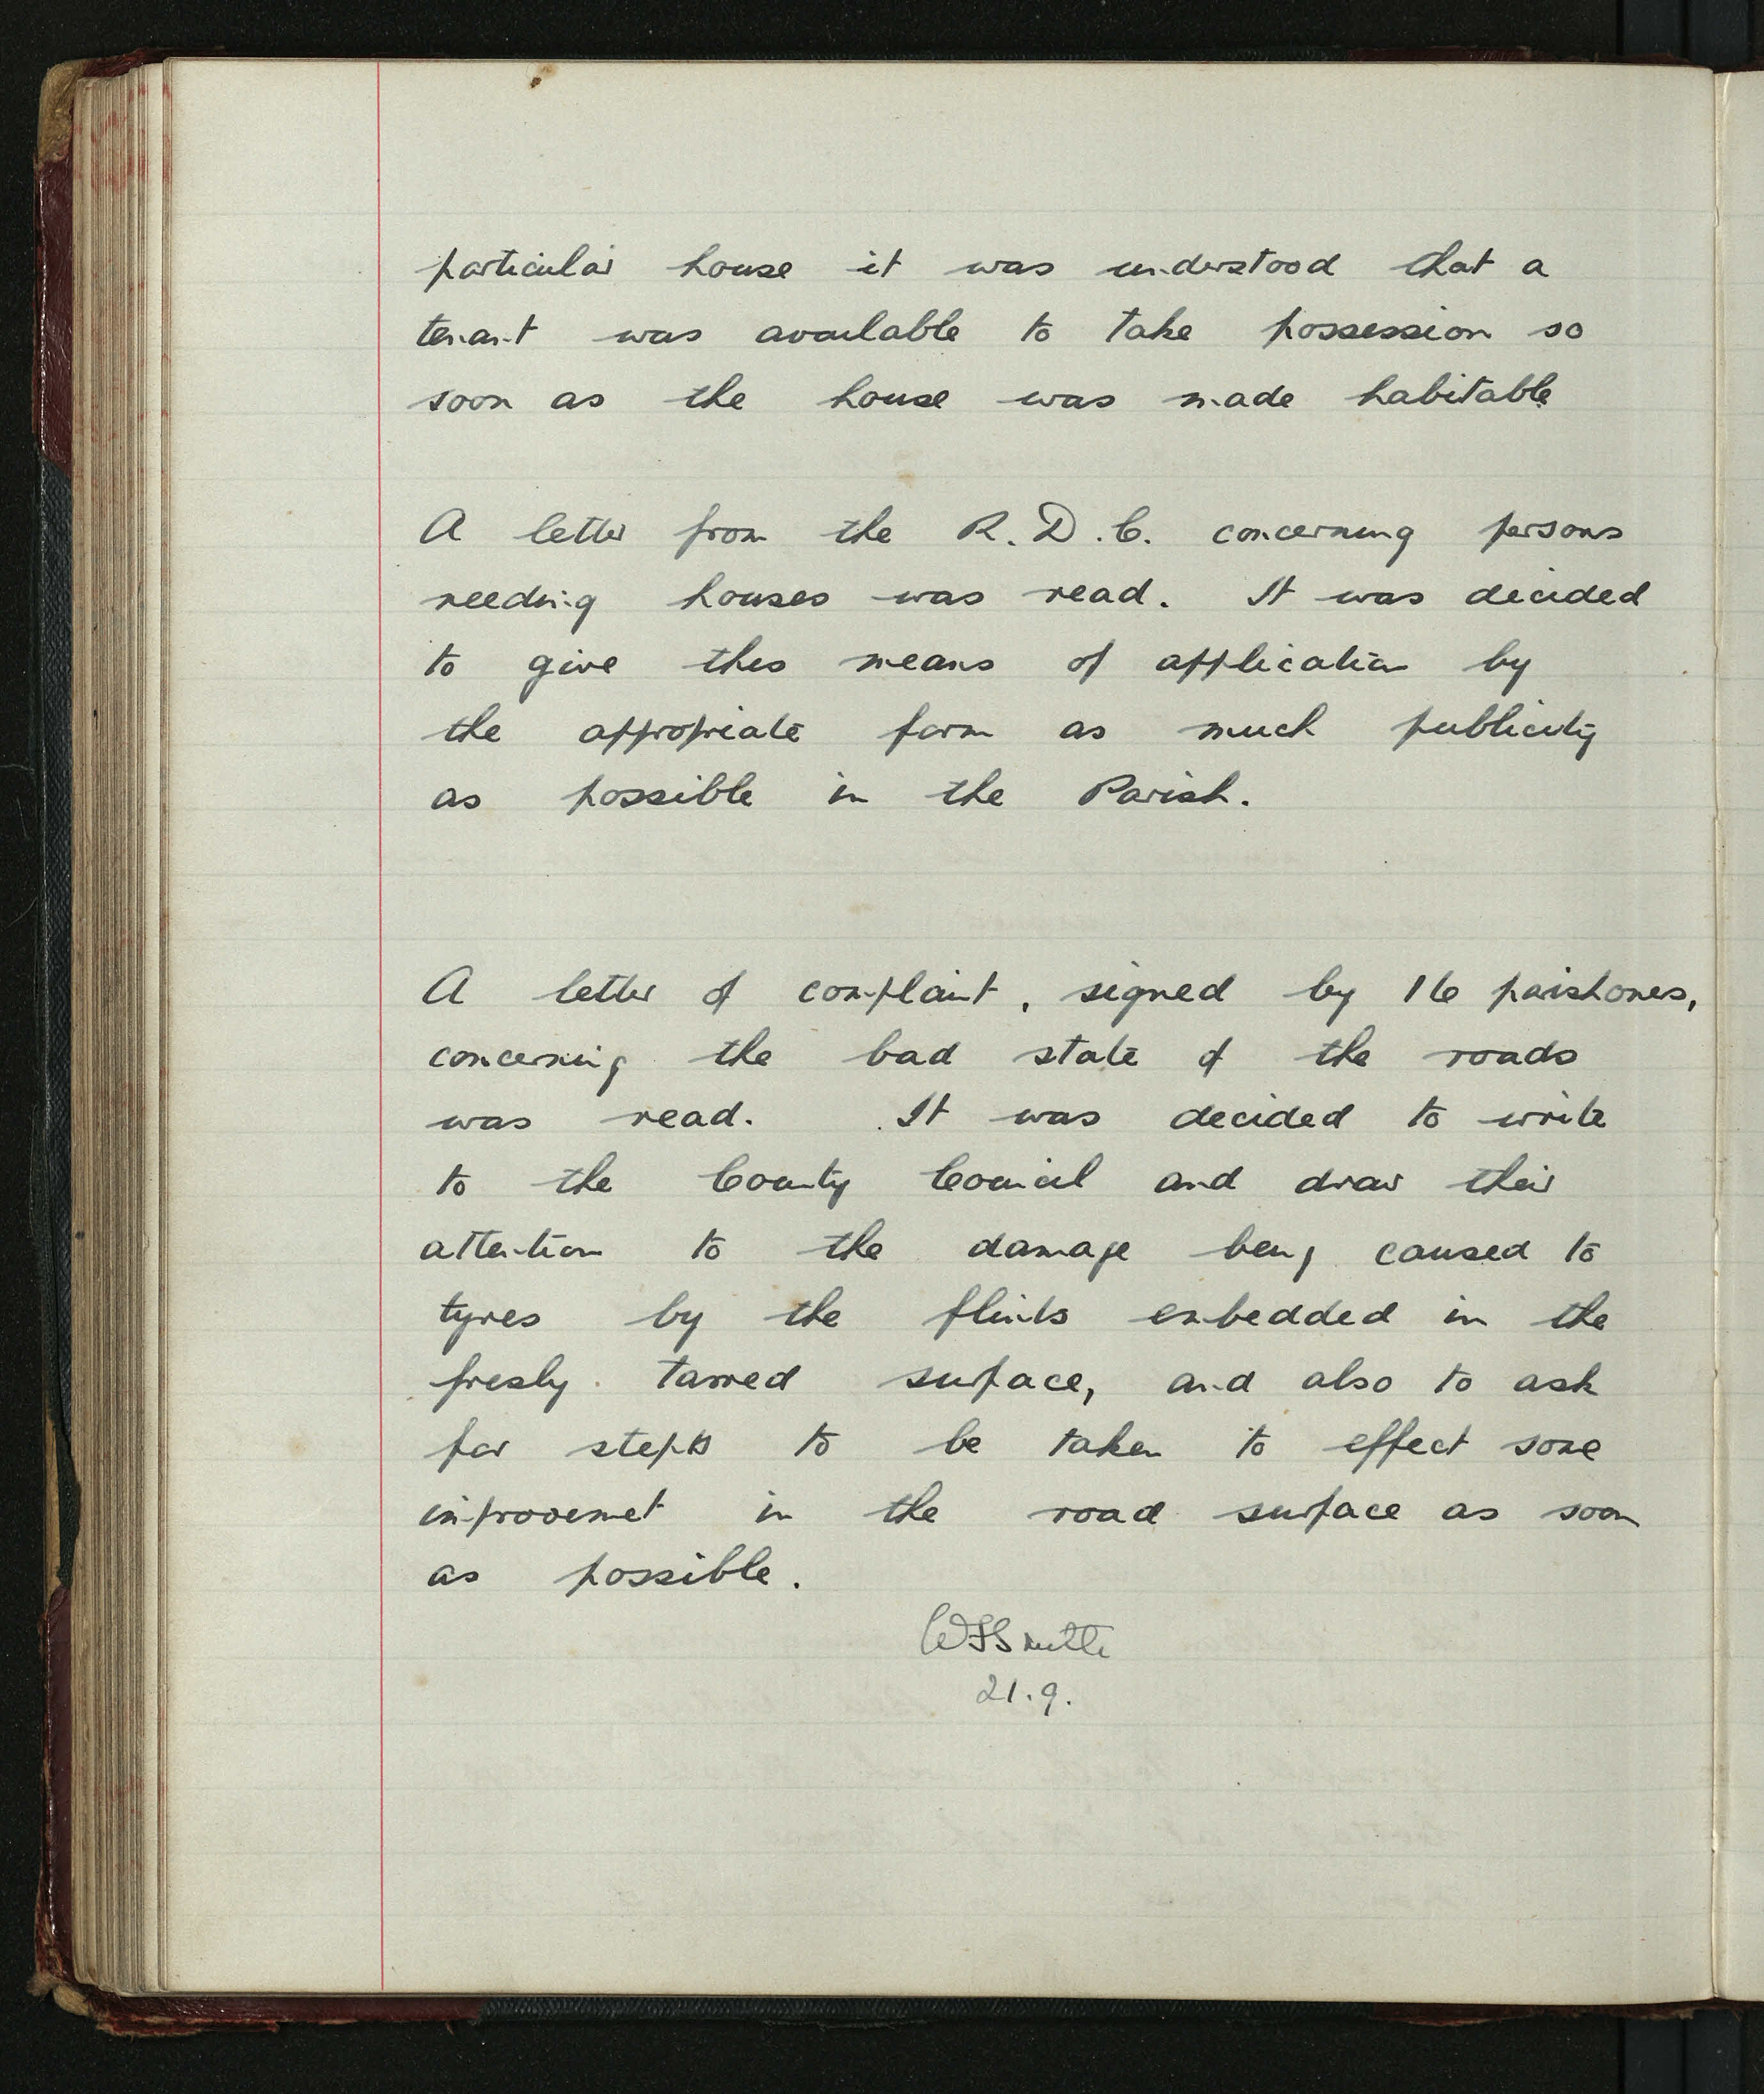 particular house it was understood that a
tenant was available to take possession so
soon as the house was made habitable
A letter from the R. D. C. concerning persons
needing houses was read. It was decided
to give this means of application by
the appropriate form as much publicity
as possible in the Parish.
A letter of complaint, signed by 16 parishoners,
concerning the bad state of the roads
was read. It was decided to write
to the County Council and draw their
attention to the damage being caused to
tyres by the flints embedded in the
fresly tarred surface, and also to ask
for steps to be taken to effect some
improvement in the road surface as soon
as possible.
Smith
21.9.